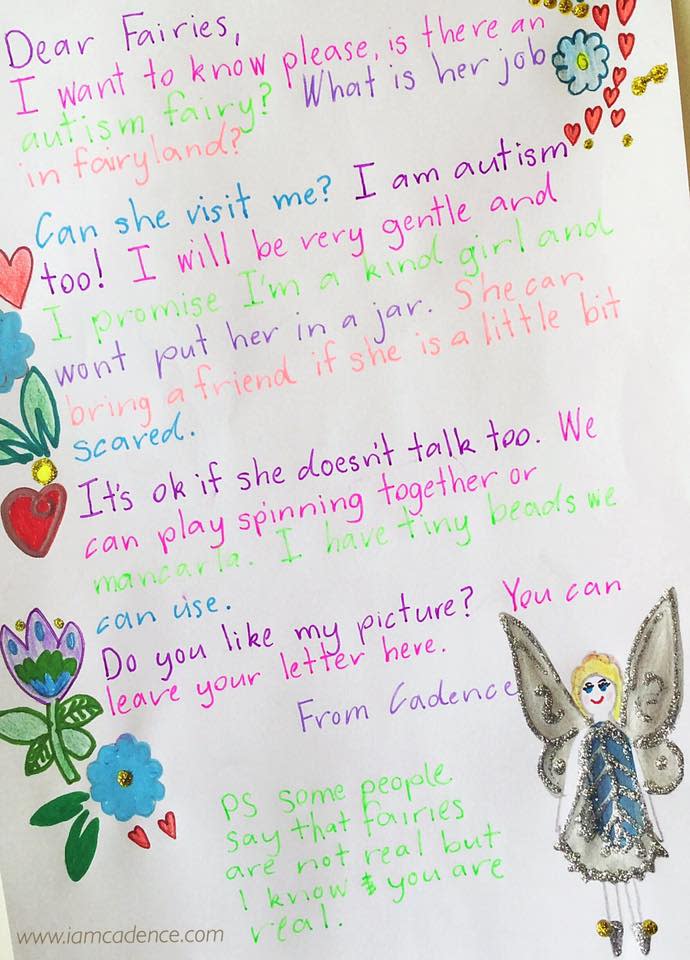 Dear Fairies,
I want to know please, is there an
autism fairy? What is her job
in fairyland?
Can she visit me? I am autism
too! I will be very gentle and
I promise I'm a kind girl and
wont put her in a jar. She can
bring a friend if she is a little bit
scared.
It's ok if she doesn't talk too. We
can play spinning together or
mancarla. I have tiny beads we
can use.
Do you like my picture? You can
leave your letter here.
From Cadence
PS some people
say that fairies
are not real but
I know you are
real.
www.iamcadence.com